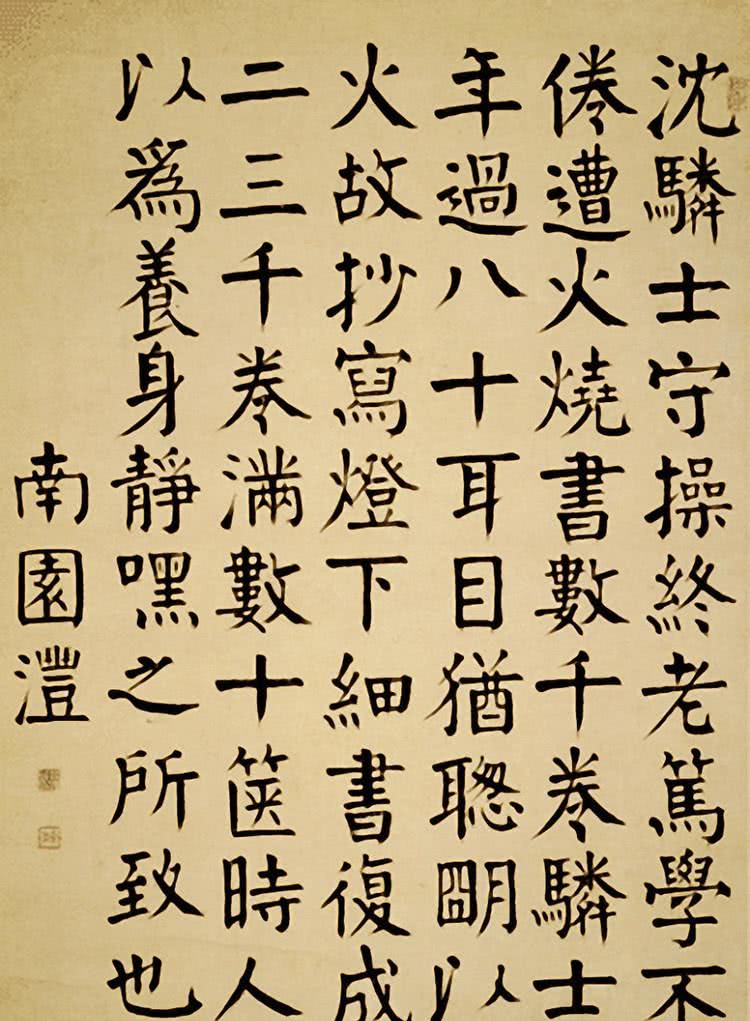 沈驎士守操終老篤學不
倦遭火燒書數千卷驎士
年過八十耳目猶聦朙以
火故抄寫燈下細書復成
二三千卷滿數十篋時人
以爲養身靜嘿之所致也
南園灃